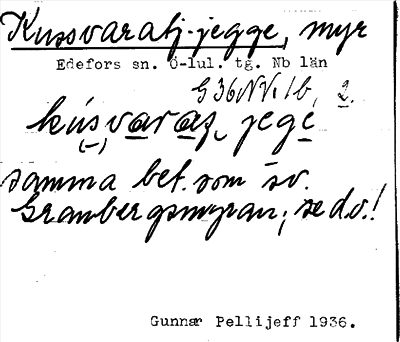 Kussvaratj-jegge, myr
Edefors sn. Ö-lul. tg. Nb län
G 36 NV. 1b, 2.
kúsvaraţ, jegè
(-)
samma bet. som sv.
Granbergsmyran; se d.o.!
Gunnar Pellijeff 1936.